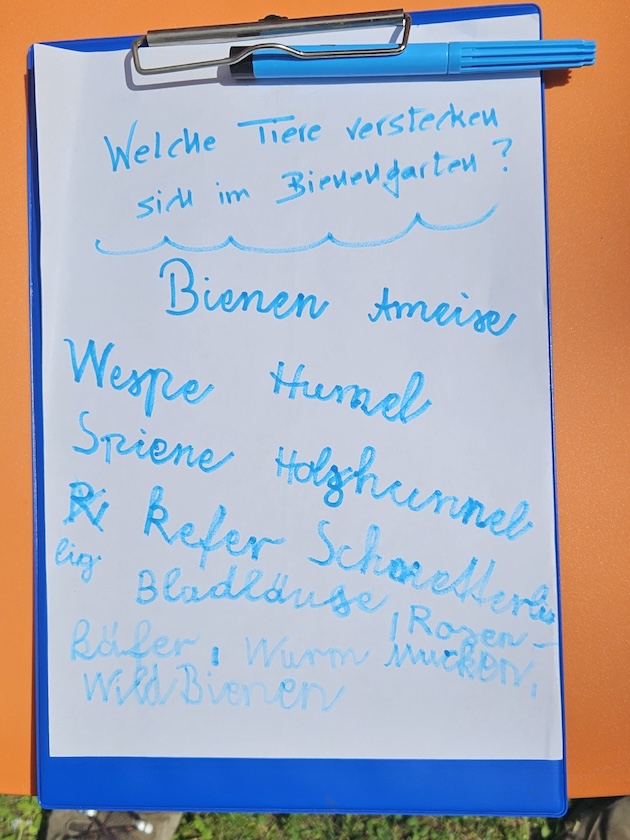 Welche Tiere verstecken
sich im Bienengarten?
Bienen Ameise
Wespe Humel
Spiene Holzhummel
Kefer Schmetterlin
lig
Bladläuse, Rosen-
käfer, Wurm Mucken,
WildBienen